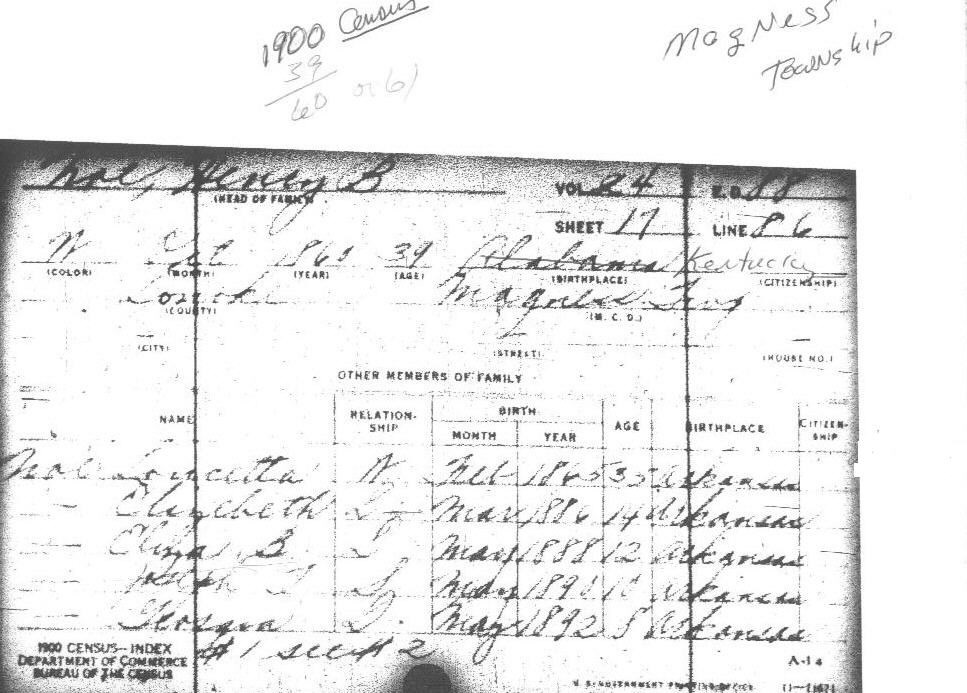 1900 Census
39
60 or 61
Magness
Township
Henry B
(HEAD OF FAMILY)
VOL 24 E.D. 88
SHEET 17 LINE 86
W 39 Alabama Kentucky
(COLOR) (MONTH) (YEAR) (AGE) (BIRTHPLACE) (CITIZENSHIP)
Lonoke Magness Twp
(COUNTY) (M. C. D.)
(CITY) (STREET) (HOUSE NO.)
OTHER MEMBERS OF FAMILY
NAME RELATION-SHIP BIRTH MONTH YEAR AGE BIRTHPLACE CITIZEN-SHIP
W Feb 1865 35 Arkansas
Elizabeth Mar 1886 14 Arkansas
Eliza B May 1888 12 Arkansas
Joseph May 1890 10 Arkansas
Georgia May 1892 8 Arkansas
#1 see #2
1900 CENSUS—INDEX
DEPARTMENT OF COMMERCE
BUREAU OF THE CENSUS
A-14
U. S. GOVERNMENT PRINTING OFFICE